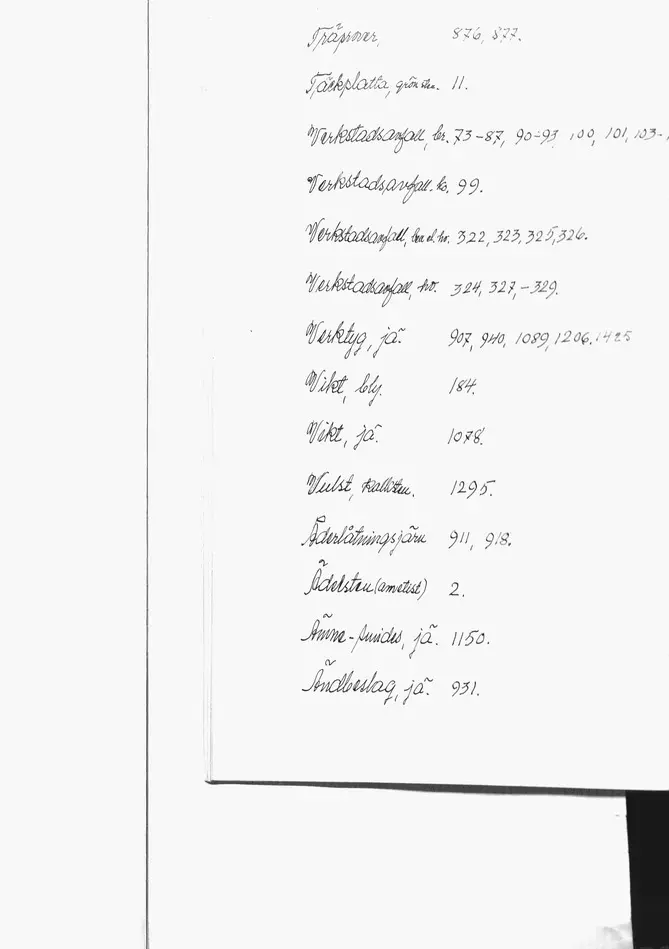 Träprover, 876, 877.
Täckplatta, grönsten. 11.
Verkstadsavfall, br. 73-87, 90-93, 100, 101, 103-
Verkstadsavfall. ko. 99.
Verkstadsavfall, ben el. ho. 322, 323, 325, 326.
Verkstadsavfall, ho. 324, 327,-329.
Verktyg, jä. 907, 940, 1089, 1206, 1425
Vikt, bly. 184.
Vikt, jä. 1078.
Vulst, kalksten. 1295.
Åderlåtningsjärn 911, 918.
Ädelsten (ametist) 2.
Ämne- jä. 1150.
Ändbeslag, jä. 931.